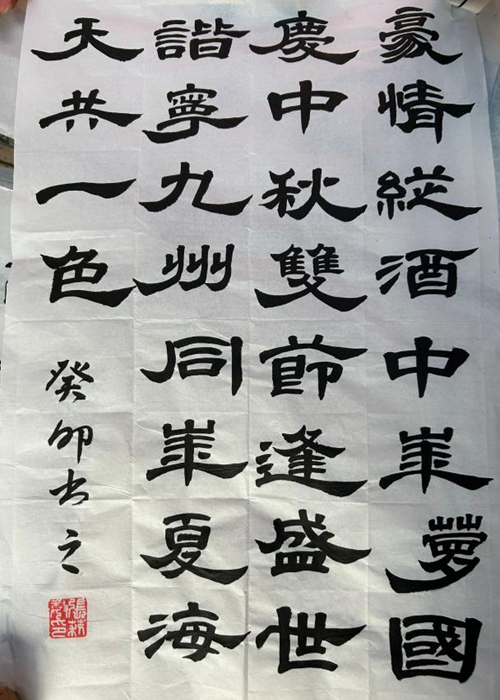 豪情縱酒中華夢國
慶中秋雙節逢盛世
諧寧九州同華夏海
天共一色
癸卯书之